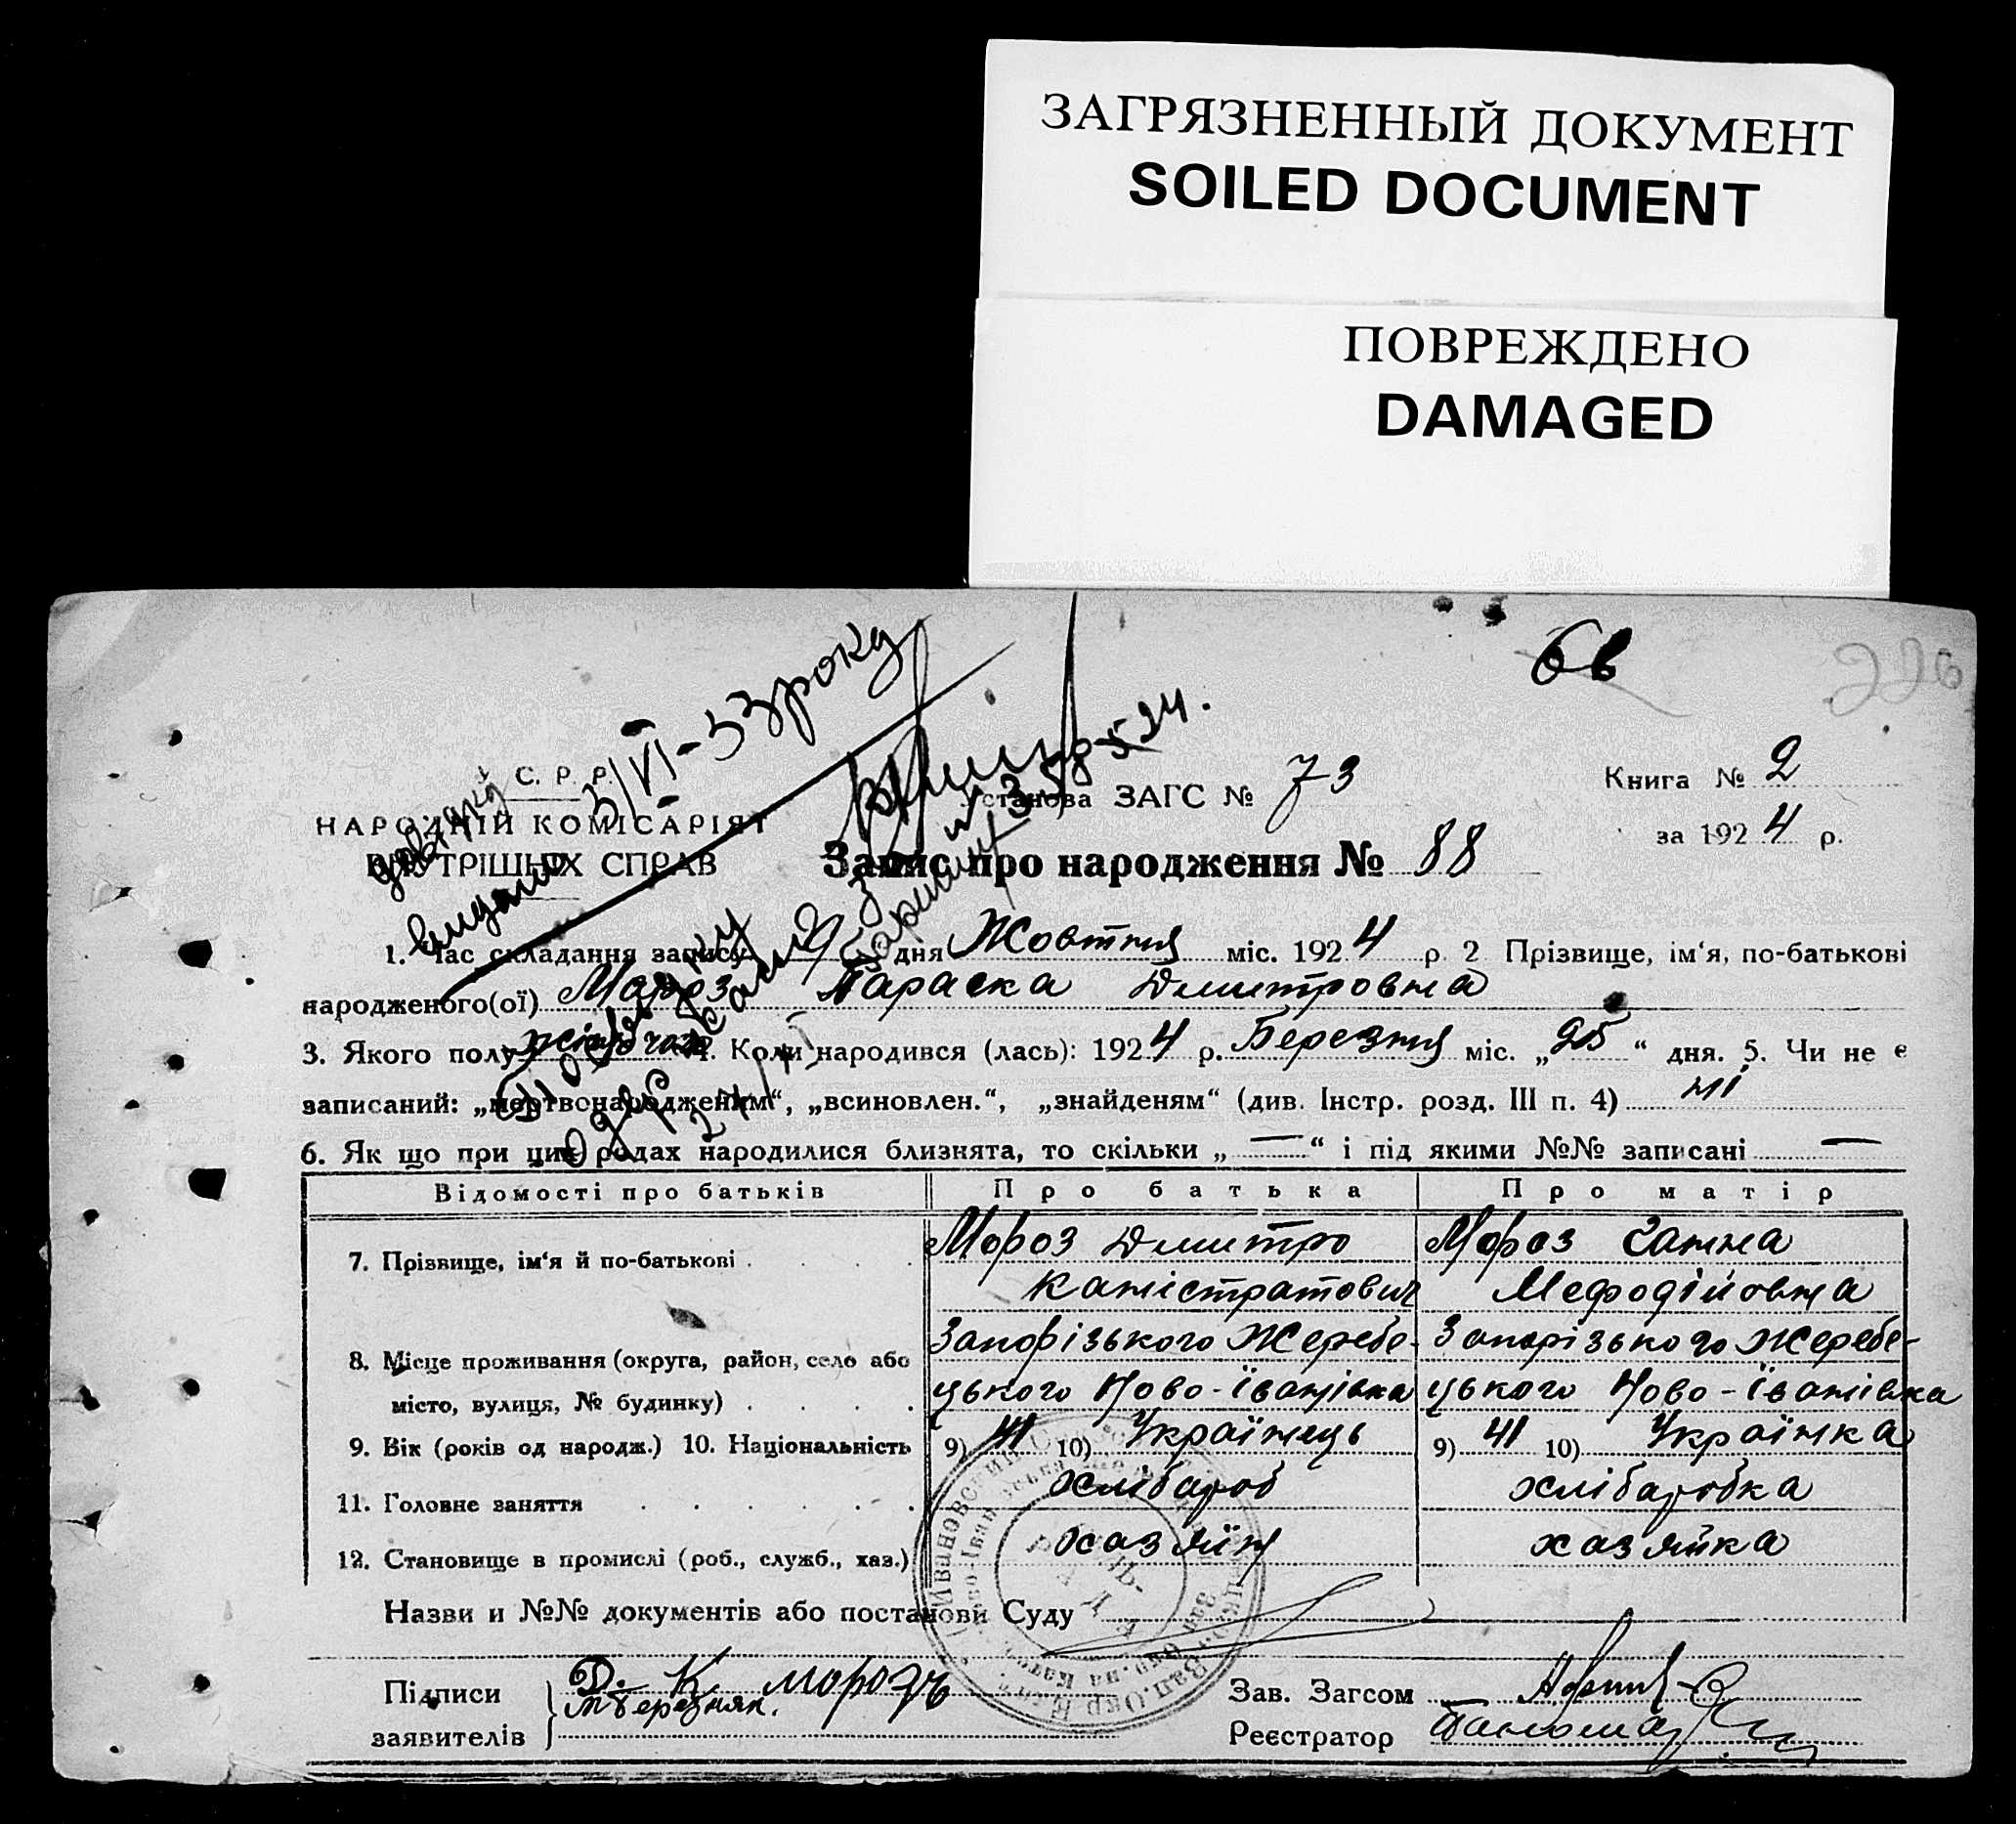 ЗАГРЯЗНЕННЫЙ ДОКУМЕНТ
SOILED DOCUMENT
ПОВРЕЖДЕНО
DAMAGED
6в
226
У. С. Р. Р.
НАРОДНІЙ КОМІСАРІЯТ
ВНУТРІШНІХ СПРАВ
довідку
видано 3/VI-33 року
Установа ЗАГС № 73
Книга № 2
за 1924 р.
Запис про народження № 88
1. Час складання запису 9 дня Жовтня міс. 1924 р. 2 Прізвище, ім'я, по-батькові
народженого(ої) Мороз Параска Дмитровна
3. Якого полу жіночого 4. Коли народився (лась): 1924 р. Березня міс. „25“ дня. 5. Чи не є
записаний: „мертвонародженим“, „всиновлен.“, „знайденям“ (див. Інстр. розд. III п. 4) ні
6. Як що при цих родах народилися близнята, то скільки „—“ і під якими №№ записані —
Відомості про батьків Про батька Про матір
7. Прізвище, ім'я й по-батькові Мороз Дмитро Мороз Ганна
Каністратович Мефодійовна
8. Місце проживання (округа, район, село або Запорізького Жеребе- Запорізького Жеребе-
місто, вулиця, № будинку) цького Ново-Іванівка цького Ново-Іванівка
9. Вік (років од народж.) 10. Національність 9) 41 10) Українець 9) 41 10) Українка
11. Головне заняття хлібароб хлібаробка
12. Становище в промислі (роб., служб., хаз.) хазяїн хазяйка
Назви и №№ документів або постанови Суду
Підписи Д. К. Морозь Зав. Загсом
заявителів Реєстратор